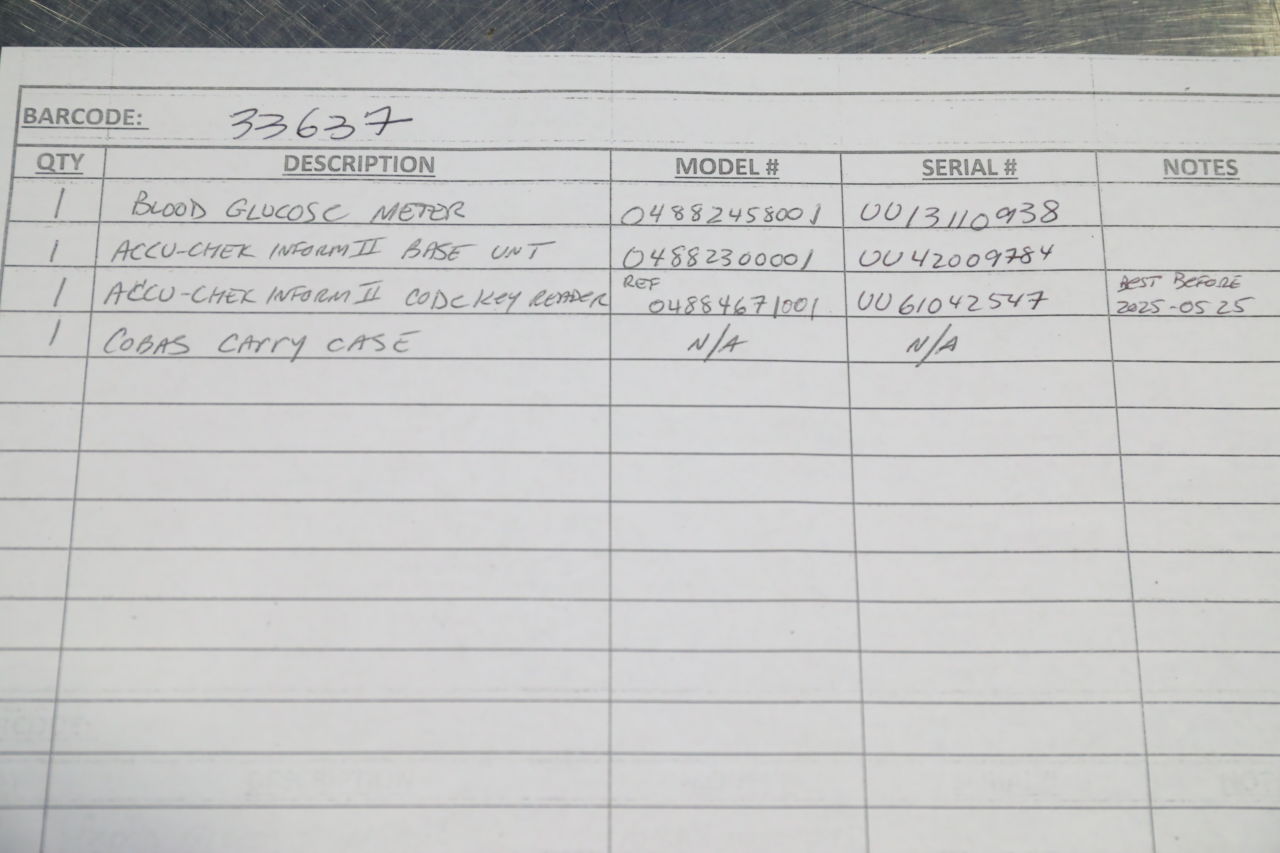 BARCODE: 33637
QTY DESCRIPTION MODEL # SERIAL # NOTES
1 BLOOD GLUCOSE METER 04882458001 UU13110938
1 ACCU-CHEK INFORM II BASE UNT 04882300001 UU42009784
1 ACCU-CHEK INFORM II CODE KEY READER REF 04884671001 UU61042547 BEST BEFORE 2025-05 25
1 COBAS CARRY CASE N/A N/A